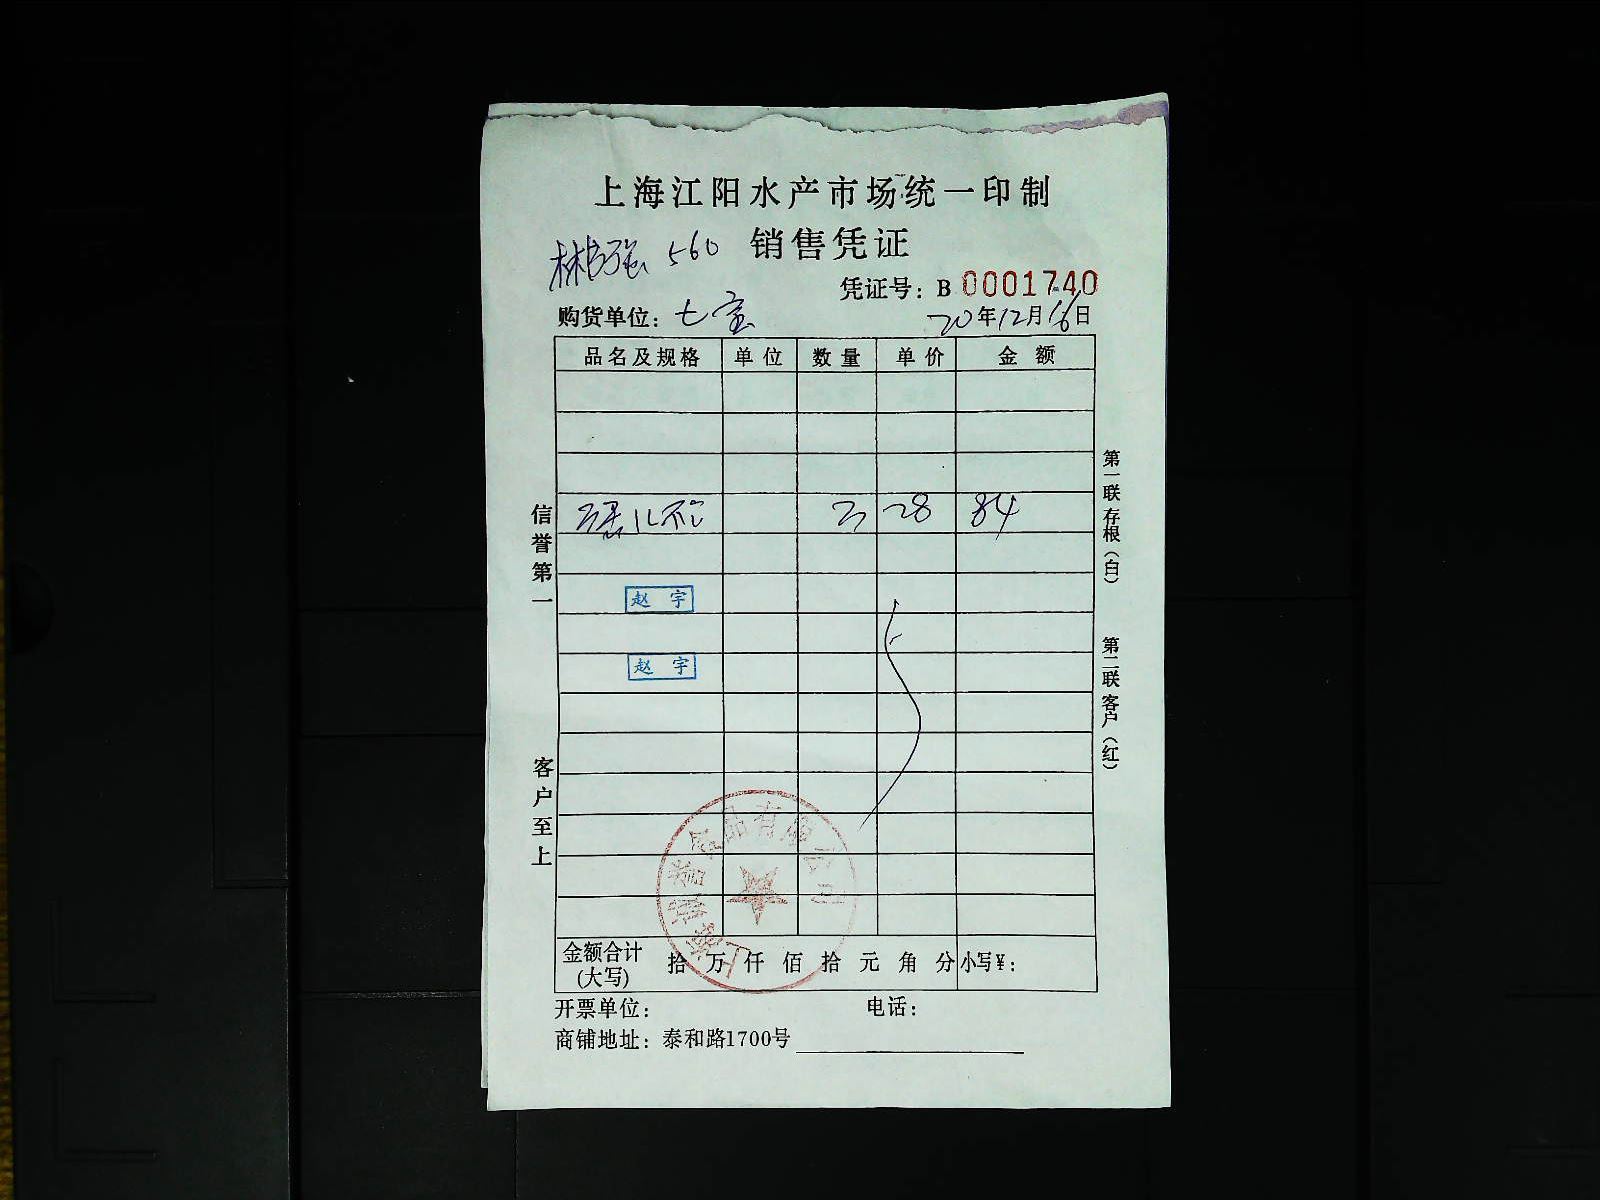 上海江阳水产市场统一印制
560 销售凭证
凭证号: B 0001740
购货单位: 七宝 20年12月16日
品名及规格 单位 数量 单价 金额
28 84
赵 宇
赵 宇
金额合计(大写) 拾 万 仟 佰 拾 元 角 分 小写¥:
开票单位: 电话:
商铺地址: 泰和路1700号
信誉第一 客户至上
第一联 存根(白) 第二联 客户(红)